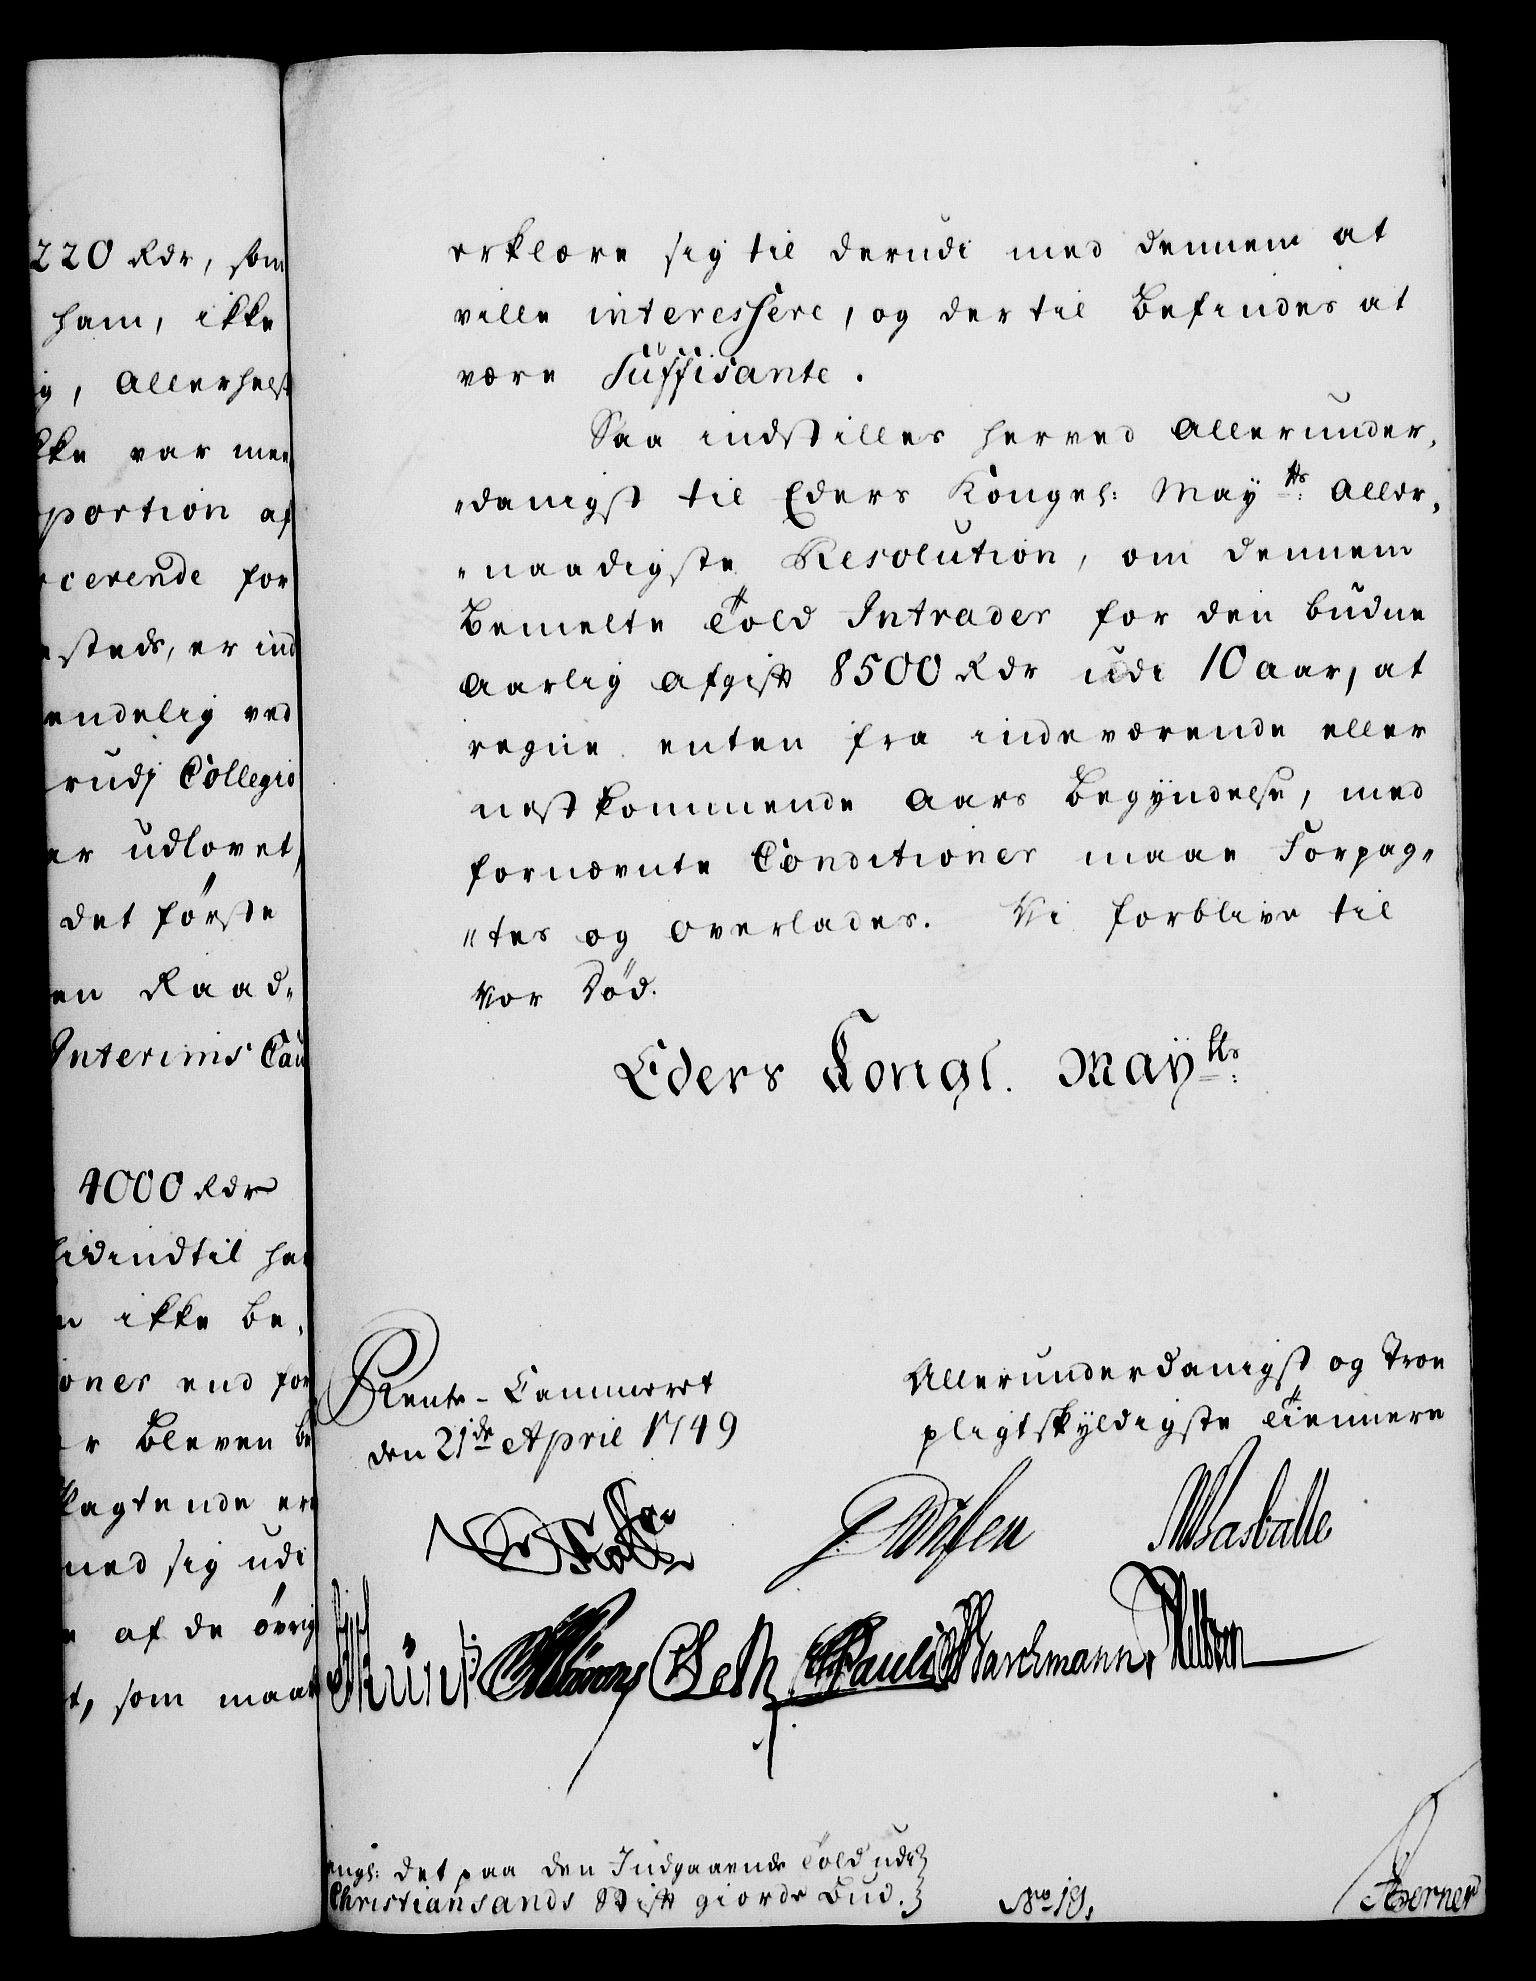 220 Rdr, som
ham, ikke
ig, Allerhelst
ikke var meer
portion af
cerende for
steds, er ind
endelig ved
rudj Collegio
er udlovet,
det første
en Raad„
Interims Cau
4000 Rdr
hidindtil ha
ikke be„
oner end for
er bleven be
pagtende er
med sig udi
af de øvrig
t, som maat
erklære sig til derudi med dennem at
ville interessere, og dertil befindes at
være Suffisante.
Saa indstilles herved Allerunder„
„danigst til Eders Kongel: May^tts: Aller„
„naadigste Resolution, om dennem
bemelte Told Intrader for den budne
Aarlig Afgift 8500 Rdr udi 10 aar, at
regne enten fra indeværende eller
nestkommende Aars Begyndelse, med
fornævnte Conditioner maae Forpag„
„tes og overlades. Vi forblive til
Vor Død.
Eders Kongl. May^tts:
Rente-Cammeret
den 21^de April 1749
Allerunderdanigst og Troe
pligtskyldigste Tiennere
Pauli
angl: det paa den Indgaaende Told udi
Christiansands Stift giorde Bud.
N^o 19.
Berner